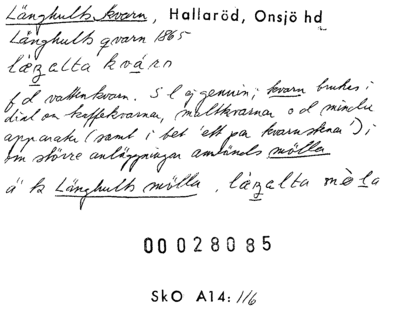 Långhults kvarn, Hallaröd, Onsjö hd
Långhults qvarn 1865
kvárn
f d vattenkvarn. Sl ej genuin; kvarn brukas i
dial om kaffekvarnar, maltkvarnar o d mindre
apparater (samt i bet 'ett par kvarnstenar'); i
om större anläggningar används mölla
ä k Långhults mölla,
00 028085
SkO A14: 116